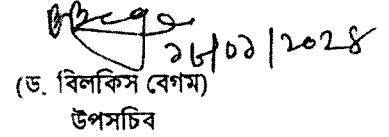 ১৮/০১/২০২৪
(ড. বিলকিস বেগম)
উপসচিব